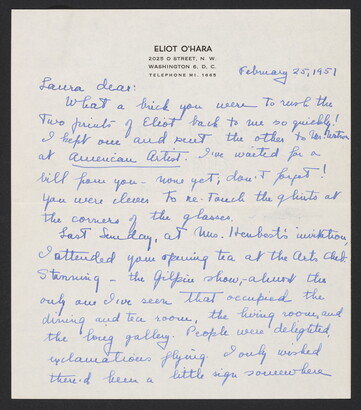 ELIOT O'HARA
2025 O STREET, N. W.
WASHINGTON 6, D. C.
TELEPHONE HI. 1685
February 25, 1951
Laura dear:
What a brick you were to rush the
two prints of Eliot back to me so quickly!
I kept one and sent the other to Mr. Watson
at American Artist. I've waited for a
bill from you - none yet; don't forget!
You were clever to re-touch the glints at
the corners of the glasses.
Last Sunday, at Mrs. Henbest's invitation,
I attended your opening tea at the Arts Club.
Stunning - the Gilpin show, - almost the
only one I've seen that occupied the
dining and tea room, the living room, and
the long gallery. People were delighted,
exclamations flying. I only wished
there'd been a little sign somewhere